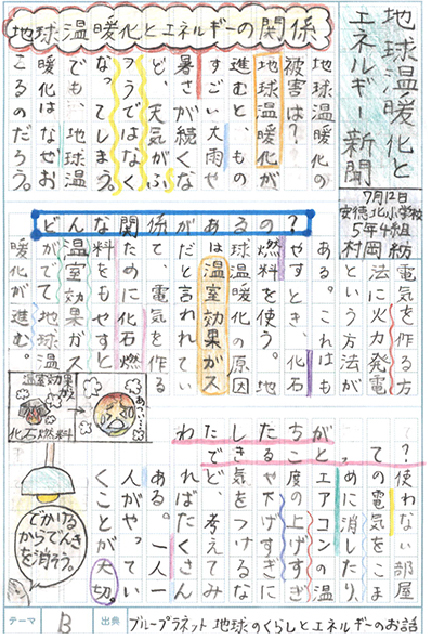 地球温暖化と
エネルギー新聞
7月12日
安徳北小学校
5年4組
村岡 紡
地球温暖化とエネルギーの関係
地球温暖化の
被害は?
地球温暖化が
進むと、もの
すごい大雨や
暑さが続くな
ど、天気がふ
つうではなく
なってしまう。
でも、地球温
暖化はなぜお
こるのだろう。
どんな関係があるの?
電気を作る方
法に火力発電
という方法が
ある。これはも
やすとき、化石
燃料を使う。地
球温暖化の原因
は温室効果ガス
だと言われてい
て、電気を作る
ために化石燃
料をもやすと
温室効果ガス
がでて地球温
暖化が進む。
温室効果
ガス
化石燃料
あつ…
わたしたちが
できることって?
使わない部屋
の電気をこま
めに消したり、
エアコンの温
度の上げすぎ
や下げすぎに
気をつけるな
ど、考えてみ
ればたくさん
ある。一人一
人がやってい
くことが大切。
でかける
からでんき
を消そう。
テーマ B 出典 ブループラネット 地球のくらしとエネルギーのお話